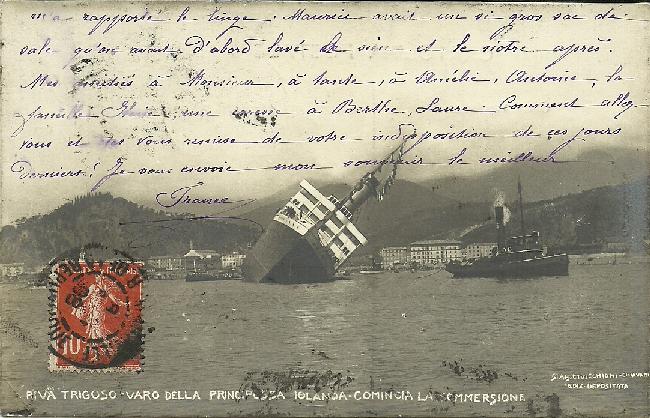 m'a rapporté le linge. Maurice avait un si gros sac de
sale qu'on avait d'abord lavé le sien et le nôtre après.
Mes amitiés à Monsieur, à tante, à Amélie, Antoine, la
famille une à Berthe, Laure. Comment allez
vous et êtes vous remise de votre indisposition de ces jours
Derniers? Je vous envoie mon souvenir le meilleur
France
10
RIVA TRIGOSO - VARO DELLA PRINCIPESSA IOLANDA - COMINCIA LA SOMMERSIONE
DEPOSITATA